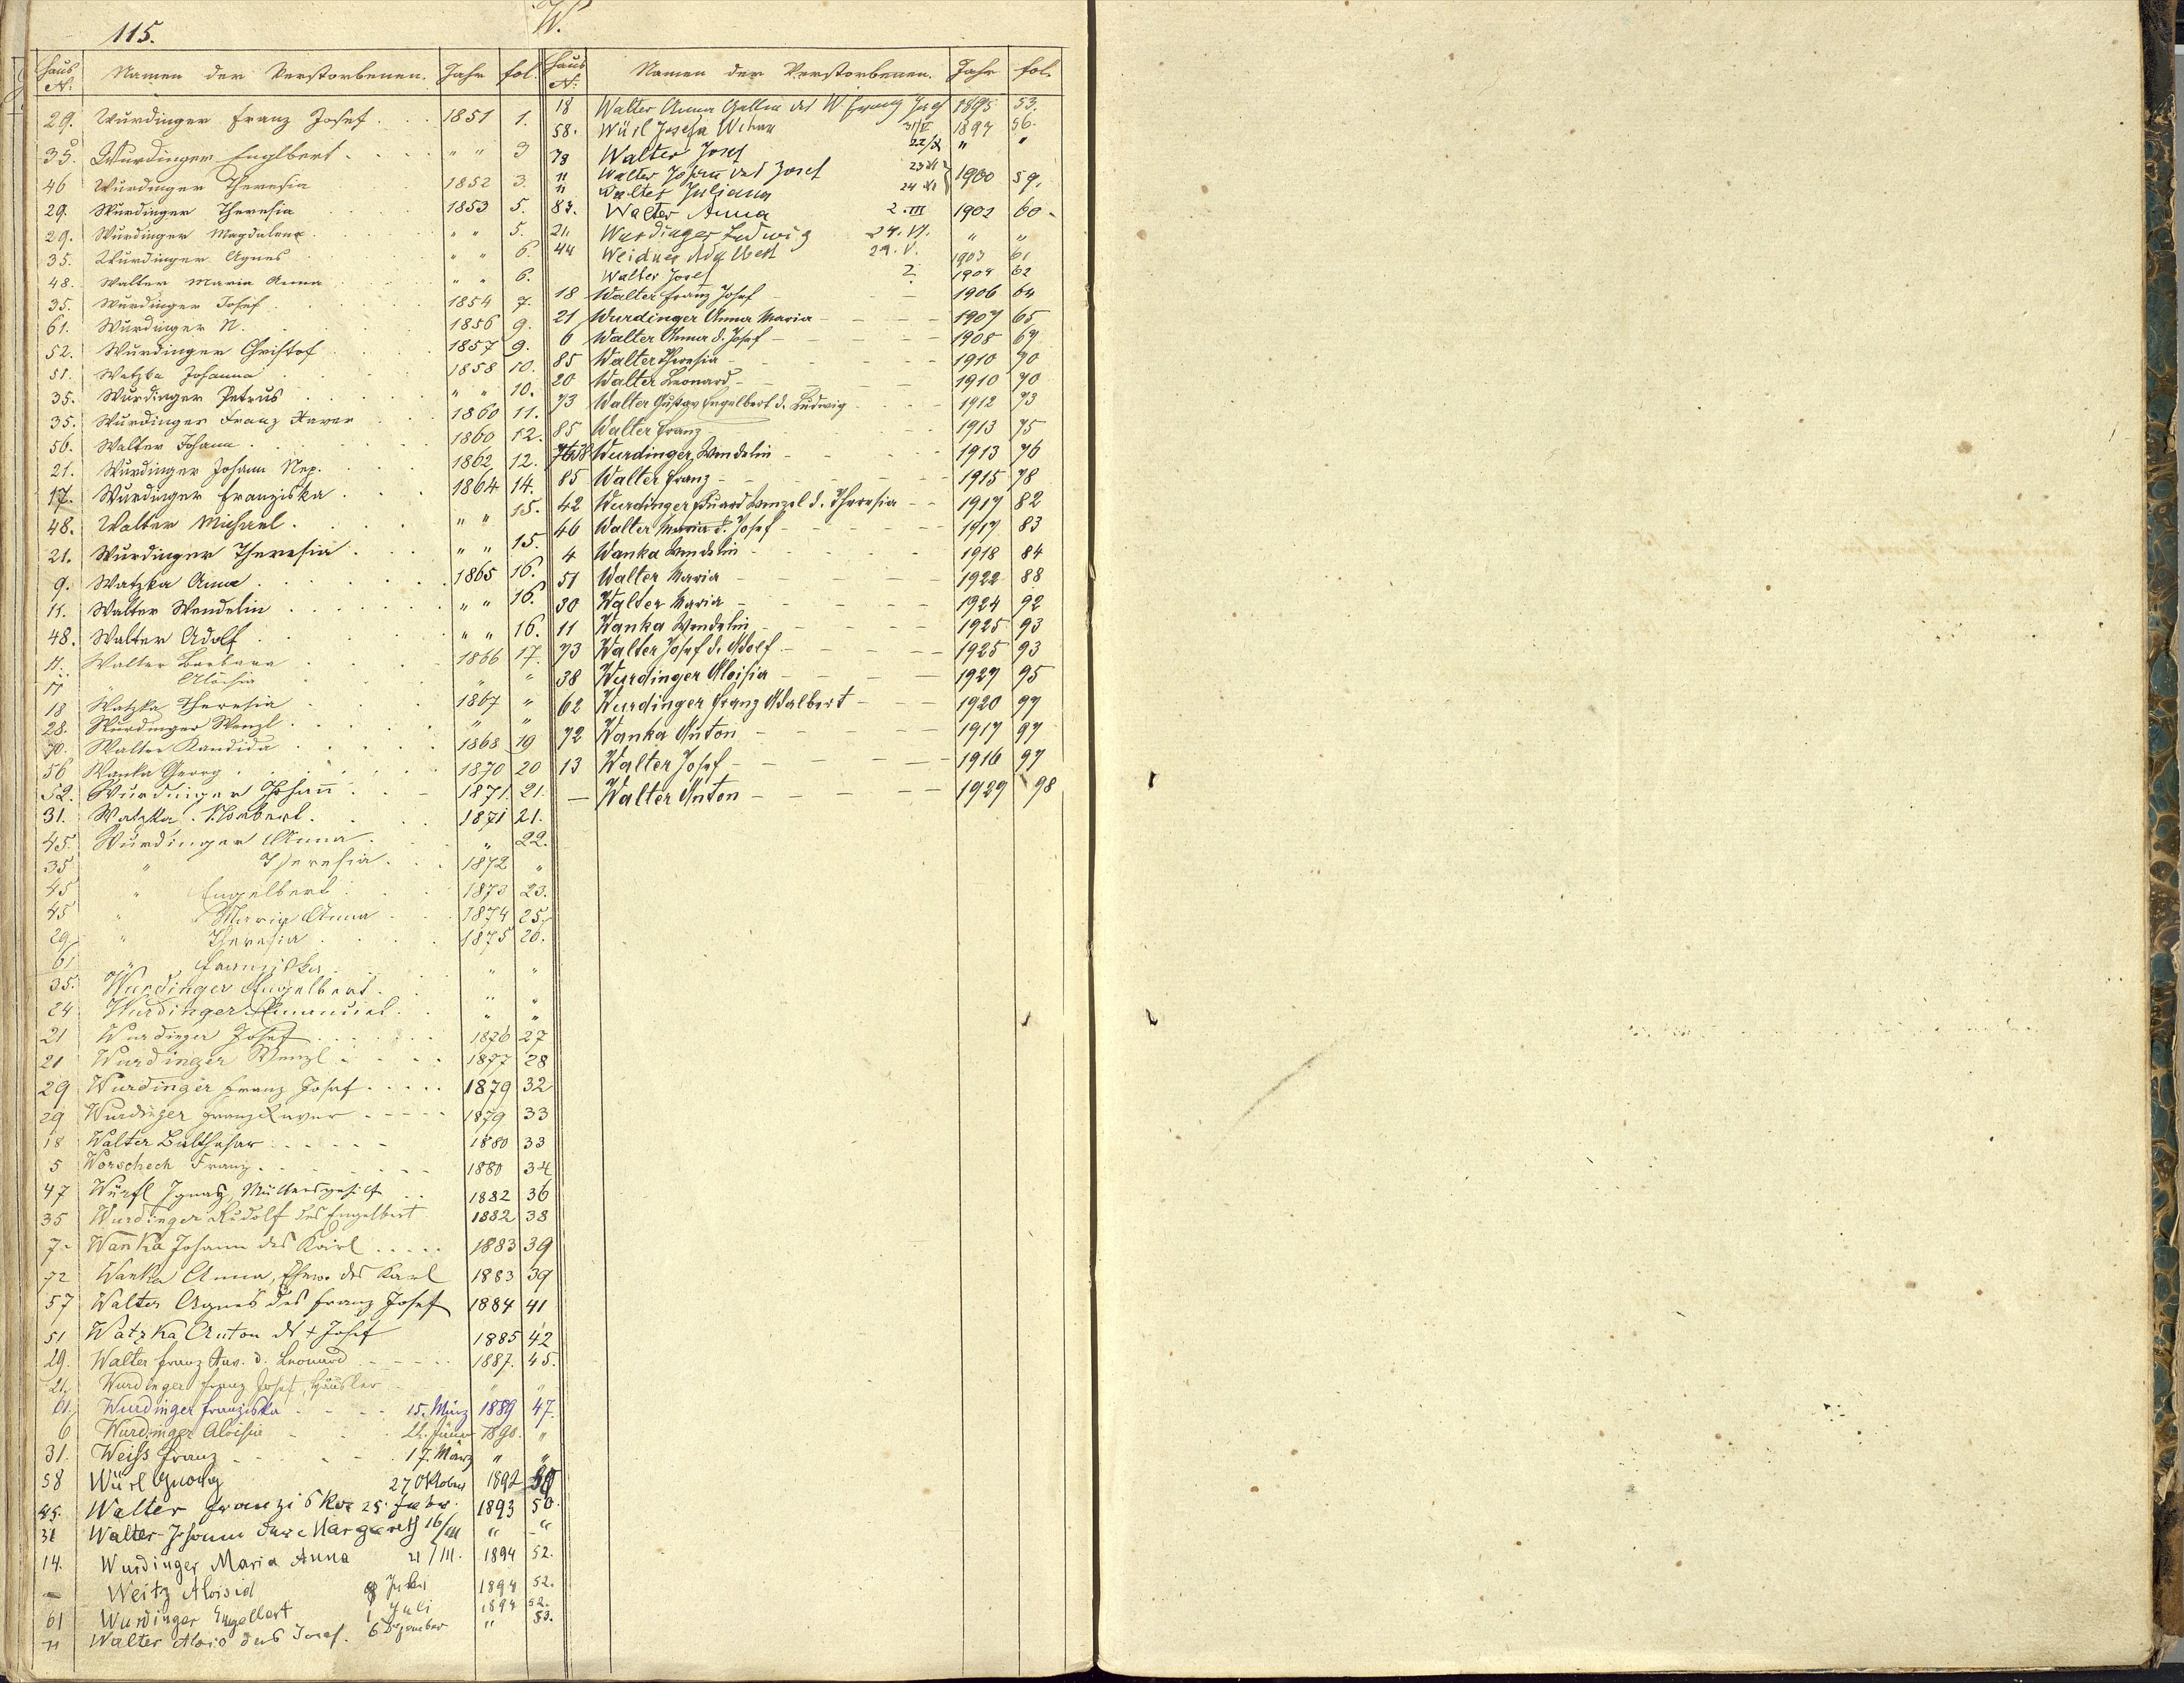 115.
W.
Haus N: Namen der Verstorbenen. Jahr fol.
29. Wurdinger Franz Josef . . 1851 1.
35. Wurdinger Englbert . . . " " 3
46 Wurdinger Theresia 1852 3.
29. Wurdinger Theresia 1853 5.
29. Wurdinger Magdalena . " " 5.
35. Wurdinger Agnes " " 6.
48. Walter Maria Anna " " 6.
35. Wurdinger Josef 1854 7.
61. Wurdinger N. 1856 9.
52. Wurdinger Christof 1857 9.
51. Watzka Johanna 1858 10.
35. Wurdinger Petrus " " 10.
35. Wurdinger Franz Xaver 1860 11.
56. Walter Johann . 1860 12.
21. Wurdinger Johann Nep. 1862 12.
17. Wurdinger Franziska . 1864 14.
48. Walter Michael . " " 15.
21. Wurdinger Theresia . " " 15.
9. Watzka Anna . 1865 16.
11. Walter Wendelin . " " 16.
48. Walter Adolf . " " 16.
11. Walter Barbara 1866 17.
17 " Aloisia " "
18 Watzka Theresia 1867 "
28. Wurdinger Wenzl . " "
70. Walter Kandida 1868 19
56 Wanka Georg . 1870 20
52. Wurdinger Johann . 1871. 21.
31. Watzka Norbert . 1871 21.
45. Wurdinger Anna . " 22.
35 " Theresia . 1872 "
45 " Engelbert . 1873 23.
45 " Maria Anna 1874 25.
29 " Theresia . 1875 26.
61 " Franziska . " "
35. Wurdinger Engelbert . " "
24 Wurdinger Emanuel . " "
21 Wurdinger Josef 1876 27
21 Wurdinger Wenzl 1877 28
29 Wurdinger Franz Josef . . . . . 1879 32
29 Wurdinger Franz Xaver - - - - - 1879 33
18 Walter Balthasar - - - - 1880 33
5 Worschech Franz . - - - 1880 34
47 Würfl Ignatz, Müllersgehilfe . . 1882 36
35 Wurdinger Rudolf des Engelbert 1882 38
7- Wanka Johann des Karl . . . . . 1883 39
72 Wanka Anna, Ehew. des Karl 1883 39
57 Walter Agnes des Franz Josef 1884 41
51 Watzka Anton ds + Josef 1885 42
29. Walter Franz Xav. d. Leonard - - - 1887. 45.
21. Wurdinger Franz Josef, Häusler " "
61. Wurdinger Franziska - - - - 15. März 1889 47.
6 Wurdinger Aloisia - - 1890. "
31. Weiss Franz - - - - - 17. März " "
58 Würl Georg 27 Oktober 1892
45. Walter Franziska 25. 1893 50.
31 Walter Johann der Margareth 16/III " "
14. Wurdinger Maria Anna 21/III. 1894 52.
- Weitz Aloisia 1894 52.
61 Wurdinger Engelbert 1 Juli 1894 52.
11 Walter Alois des Josef. 6 Dezember " 53.
Haus N: Namen der Verstorbenen. Jahr fol.
18 Walter Anna Gattin des W. Franz Josef 1895 53.
58. Würl Josefa Witwe 31/V 1897 56.
73 Walter Josef 22/X " "
11 Walter Johann des Josef 23 XI 1900 59.
11 Walter Juliana 24 XI
83. Walter Anna 2. III 1902 60.
21. Wurdinger Ludwig 24. VI. " "
44 Weidner Adalbert 29. V. 1903 61
Walter Josef 2. 1904 62
18 Walter Franz Josef - - 1906 64
21 Wurdinger Anna Maria - - - - 1907 65
6 Walter Anna d. Josef - - - - - 1908 69
85 Walter Theresia - - - - 1910 70
20 Walter Leonard - - - - 1910 70
73 Walter Gustav Engelbert d. Ludwig - - - 1912 73
85 Walter Franz - - - 1913 75
38 Wurdinger Wendelin - - - - - 1913 76
85 Walter Franz - - - - - - - 1915 78
42 Wurdinger Eduard Wenzel d. Theresia - - 1917 82
46 Walter Maria d. Josef - - - - - - 1917 83
4 Wanka Wendelin - - - - - 1918 84
51 Walter Maria - - - - 1922 88
30 Walter Maria - - - - - - 1924 92
11 Wanka Wendelin - - - - - - 1925 93
73 Walter Josef d. Adolf - - - - - 1925 93
38 Wurdinger Aloisia - - - - - 1927 95
62 Wurdinger Franz Adalbert - - - 1920 97
72 Wanka Anton - - - - - - 1917 97
13 Walter Josef - - - - - - - 1916 97
- Walter Anton - - - - - - 1929 98